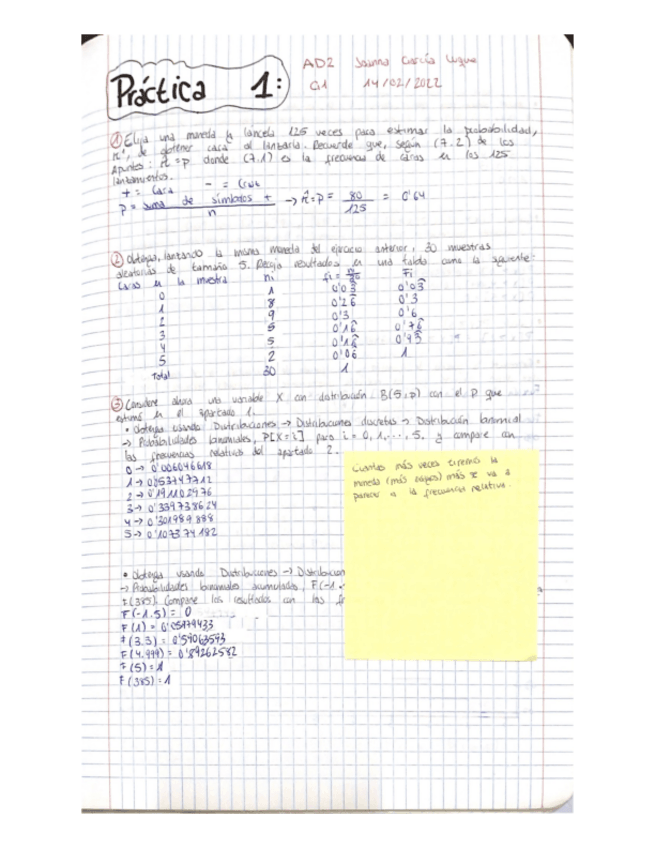 Práctica 1:
AD2 Joanna García Luque
G1 14/02/2022
① Elija una moneda y láncela 125 veces para estimar la probabilidad,
π, de obtener cara al lanzarla. Recuerde que, según (7.2) de los
apuntes: π̂ = p donde (7.1) es la frecuencia de caras en los 125
lanzamientos.
+ = Cara - = Cruz
p = suma de símbolos + / n → π̂ = p = 80 / 125 = 0'64
② Obtenga, lanzando la misma moneda del ejercicio anterior, 30 muestras
aleatorias de tamaño 5. Recoja resultados en una tabla como la siguiente:
Caras en la muestra ni fi = ni/30 Fi
0 1 0'03 0'03
1 8 0'26 0'3
2 9 0'3 0'6
3 5 0'16 0'76
4 5 0'16 0'93
5 2 0'06 1
Total 30 1
③ Considere ahora una variable X con distribución B(5, p) con el p que
estimó en el apartado 1.
• Obtenga usando Distribuciones → Distribuciones discretas → Distribución binomial
→ Probabilidades binomiales, P[X = i] para i = 0, 1, ..., 5. y compare con
las frecuencias relativas del apartado 2.
0 → 0'006046618
1 → 0'053747712
2 → 0'191102976
3 → 0'339738624
4 → 0'301989888
5 → 0'107374182
Cuantas más veces tiremos la
moneda (más
) más se va a
parecer a la frecuencia relativa.
• Obtenga usando Distribuciones → Distribucion
→ Probabilidades binomiales acumuladas, F(-1.
F(385). Compare los resultados con las fr
F(-1.5) = 0
F(1) = 0'05979433
F(3.3) = 0'59063593
F(4.999) = 0'89262582
F(5) = 1
F(385) = 1